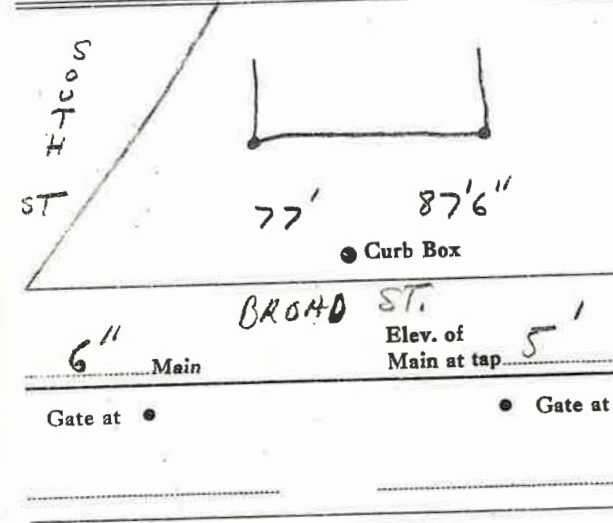 SOUTH
ST
77' 87'6"
Curb Box
BROAD ST.
Elev. of
6" Main Main at tap 5'
Gate at Gate at